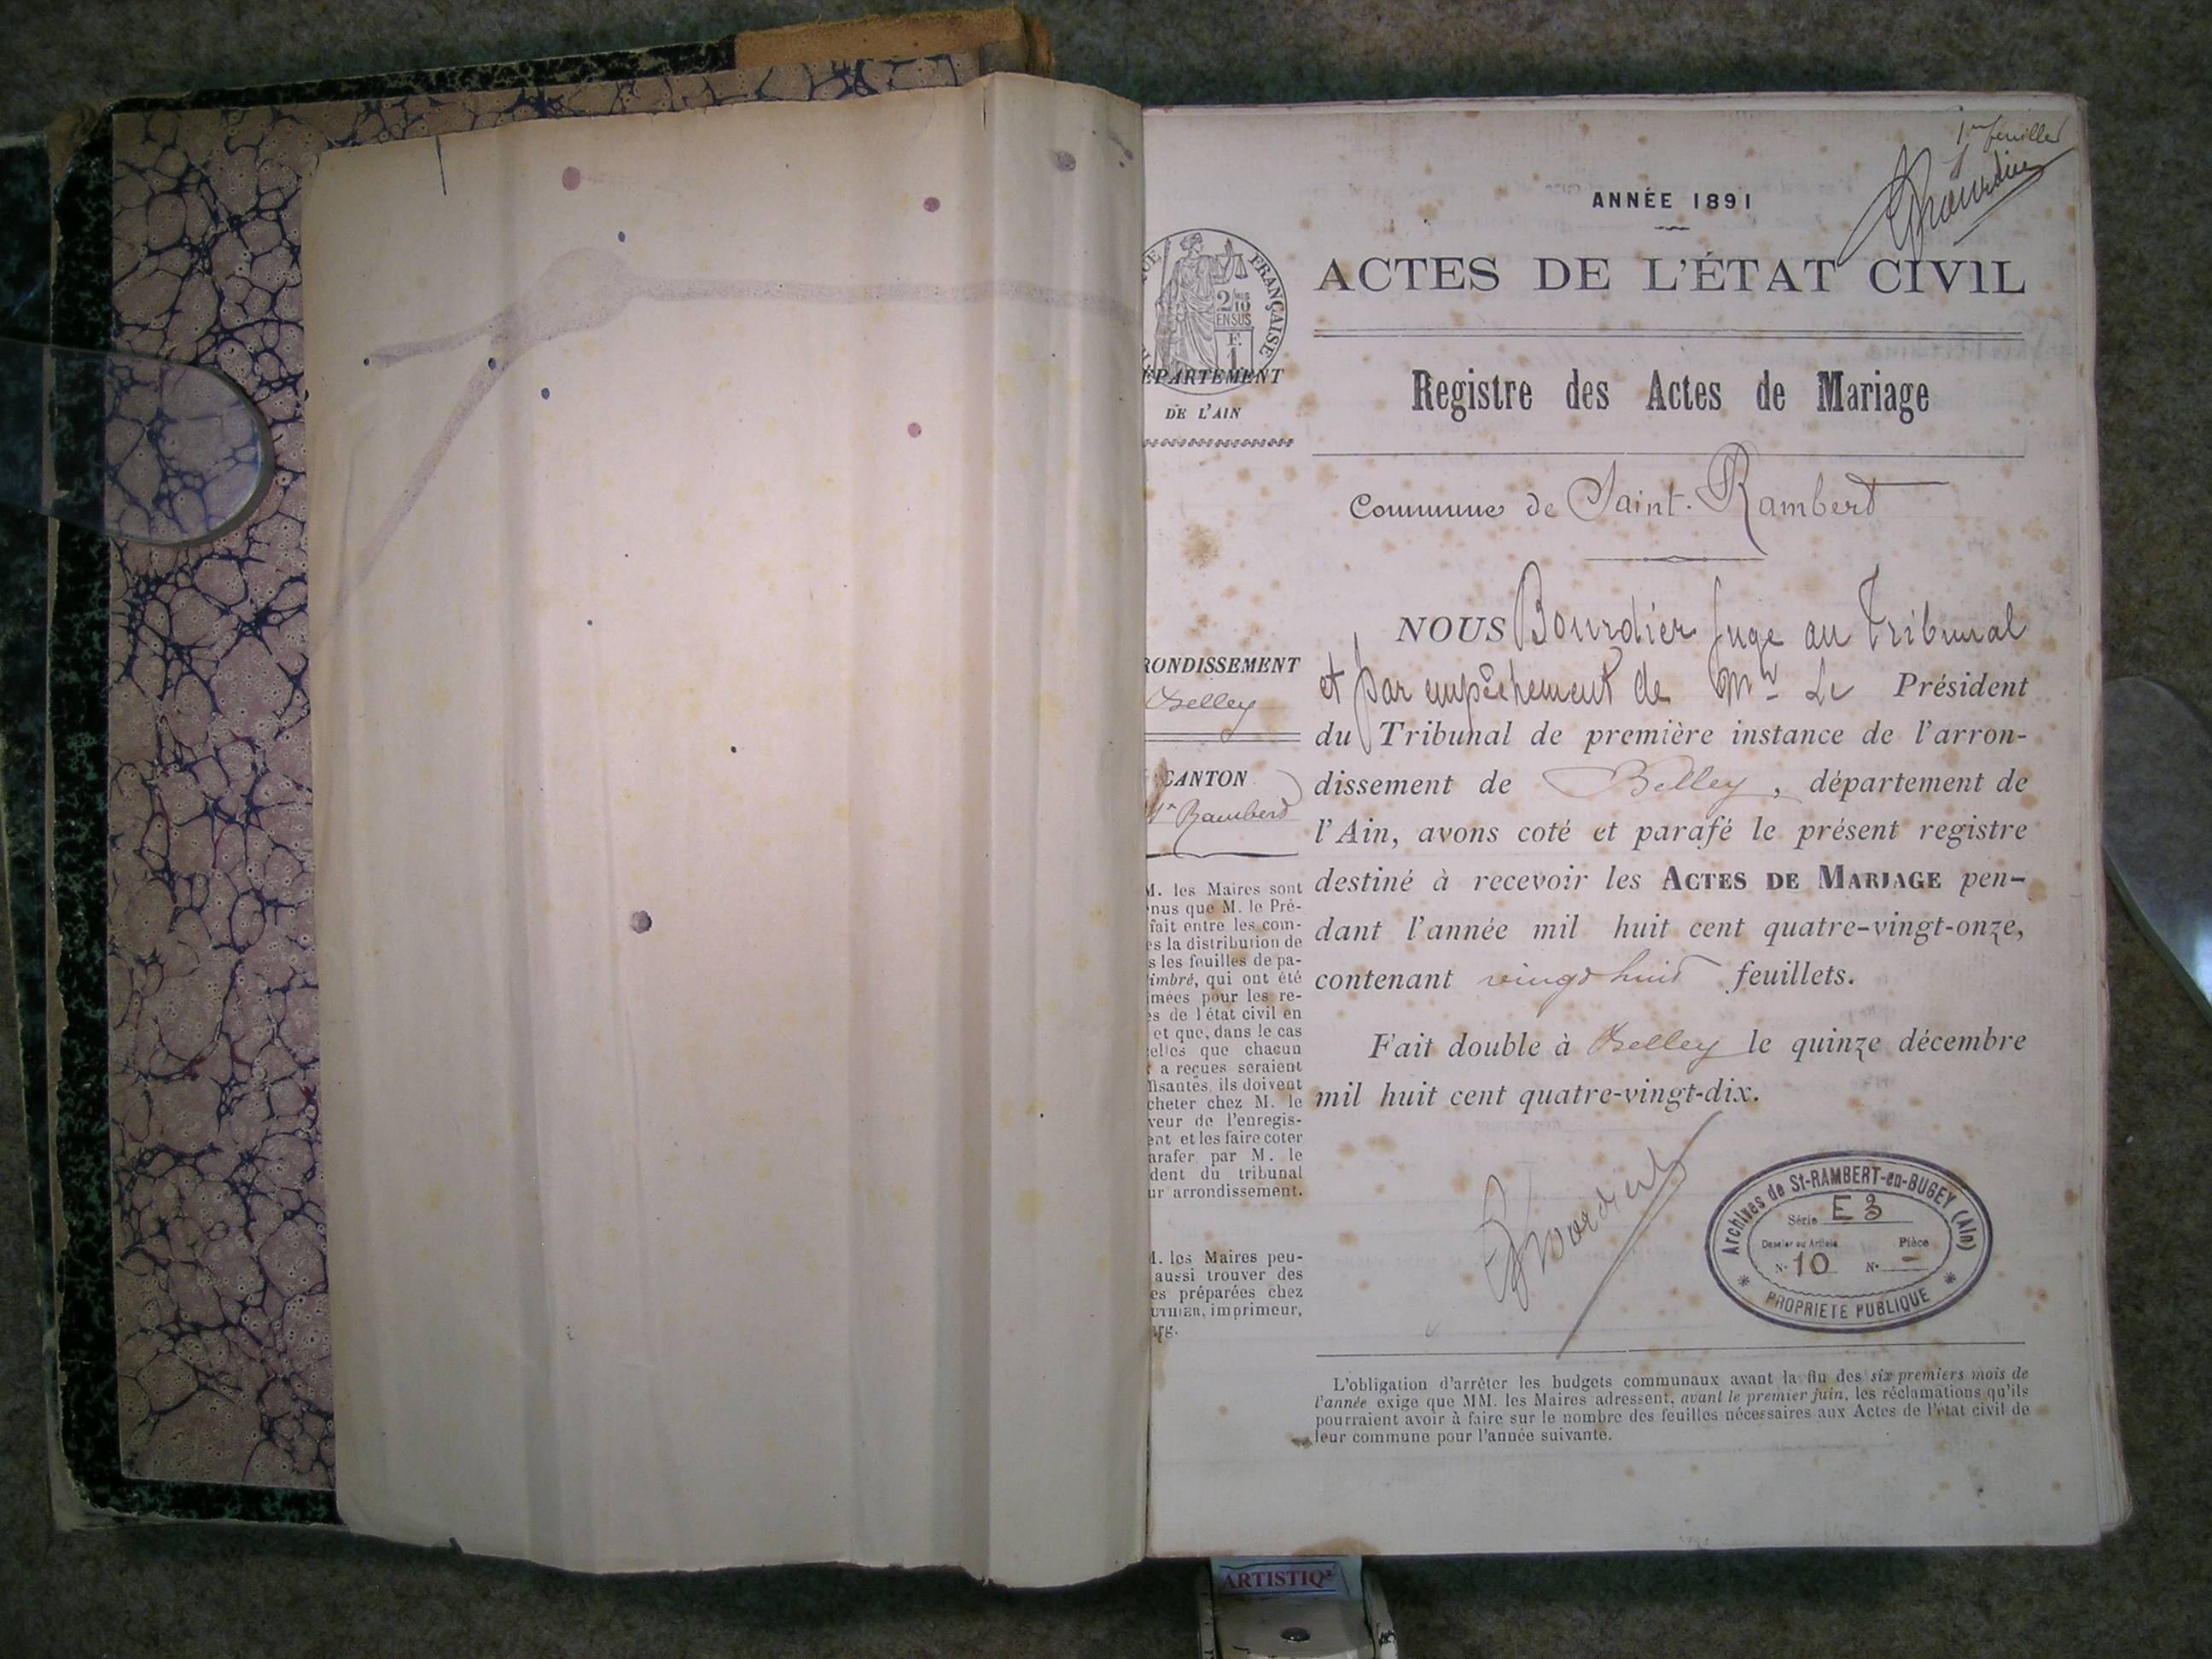 1er feuillet
Bourdier
ANNÉE 1891
ACTES DE L'ÉTAT CIVIL
Registre des Actes de Mariage
Commune de Saint-Rambert
NOUS Bourdier Juge au Tribunal
et par empêchement de Mr Le Président
du Tribunal de première instance de l'arron-
dissement de Belley, département de
l'Ain, avons coté et parafé le présent registre
destiné à recevoir les ACTES DE MARIAGE pen-
dant l'année mil huit cent quatre-vingt-onze,
contenant vingt huit feuillets.
Fait double à Belley le quinze décembre
mil huit cent quatre-vingt-dix.
Bourdier
Archives de St-RAMBERT-en-BUGEY (Ain)
Série E 3
Dossier ou Article Pièce
N° 10 N° -
PROPRIETE PUBLIQUE
L'obligation d'arrêter les budgets communaux avant la fin des six premiers mois de
l'année exige que MM. les Maires adressent, avant le premier juin, les réclamations qu'ils
pourraient avoir à faire sur le nombre des feuilles nécessaires aux Actes de l'état civil de
leur commune pour l'année suivante.
UE FRANÇAISE
2/10
EN SUS
F.
1
ÉPARTEMENT
DE L'AIN
RONDISSEMENT
Belley
CANTON
St Rambert
M. les Maires sont
nus que M. le Pré-
fait entre les com-
es la distribution de
s les feuilles de pa-
imbré, qui ont été
imées pour les re-
es de l'état civil en
et que, dans le cas
elles que chacun
a reçues seraient
fisantes, ils doivent
cheter chez M. le
veur de l'enregis-
ent et les faire coter
arafer par M. le
dent du tribunal
ur arrondissement.
M. les Maires peu-
aussi trouver des
es préparées chez
UTHIER, imprimeur,
rg.
ARTISTIQ